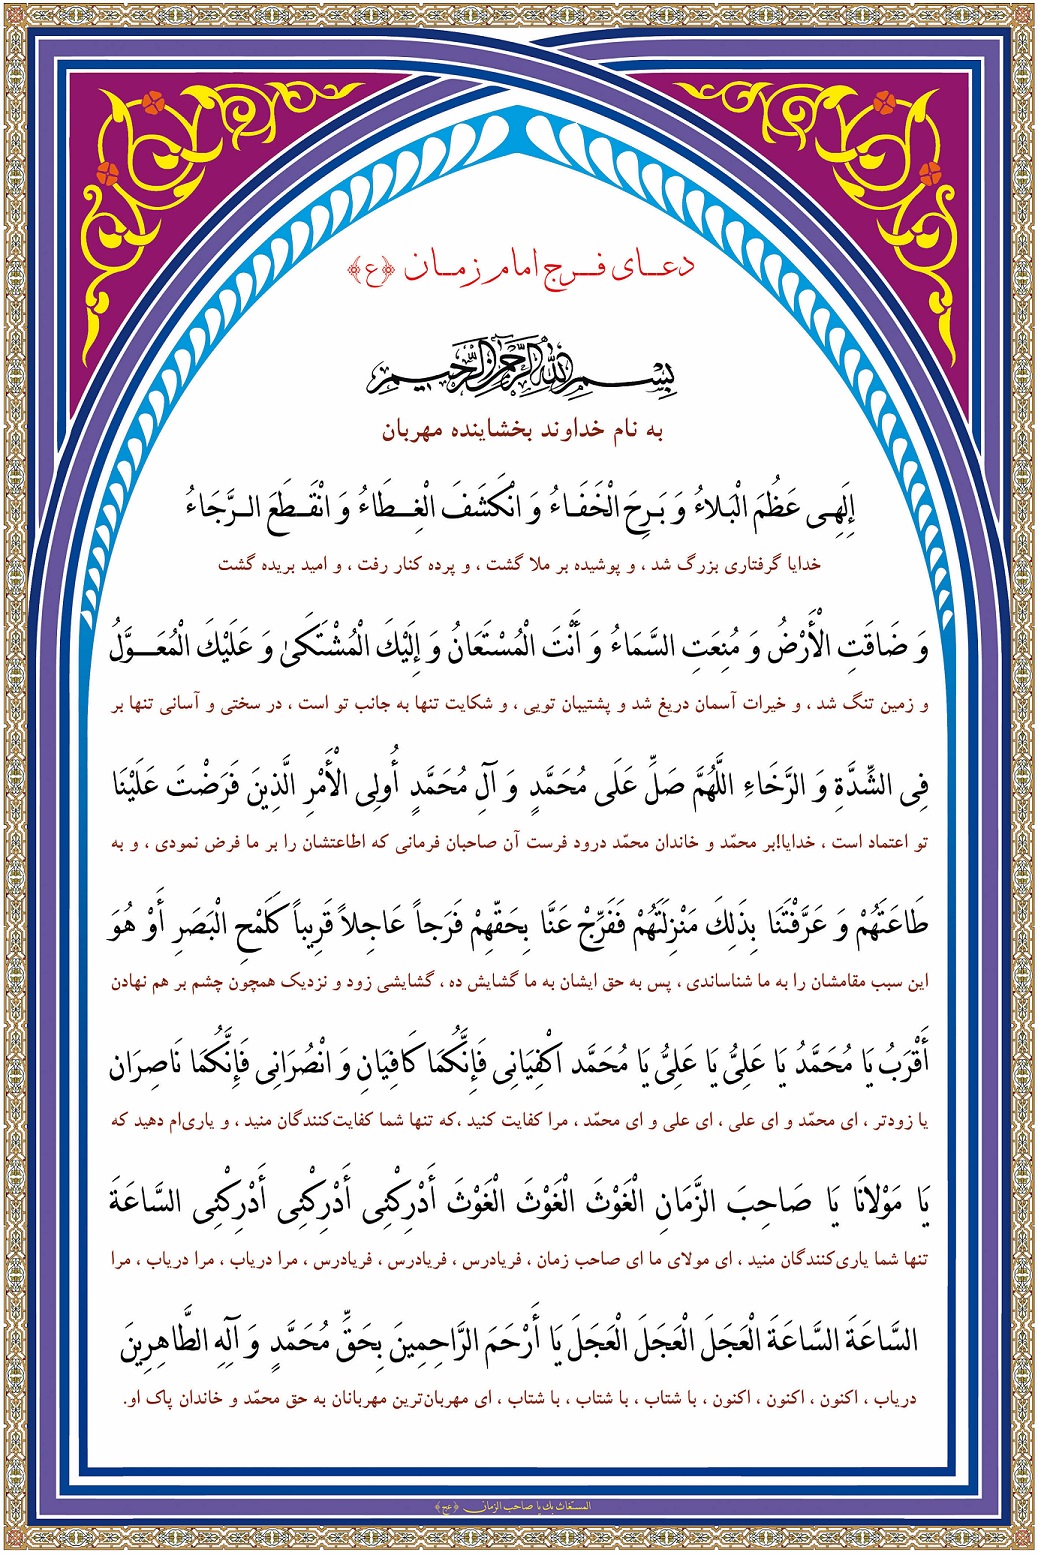 دعای فرج امام زمان ﴿ع﴾
بِسْمِ اللهِ الرَّحْمنِ الرَّحیمِ
به نام خداوند بخشاینده مهربان
إِلَهِی عَظُمَ الْبَلاءُ وَ بَرِحَ الْخَفَاءُ وَ انْکَشَفَ الْغِطَاءُ وَ انْقَطَعَ الرَّجَاءُ
خدایا گرفتاری بزرگ شد ، و پوشیده بر ملا گشت ، و پرده کنار رفت ، و امید بریده گشت
وَ ضَاقَتِ الْأَرْضُ وَ مُنِعَتِ السَّمَاءُ وَ أَنْتَ الْمُسْتَعَانُ وَ إِلَیْكَ الْمُشْتَکَیٰ وَ عَلَیْكَ الْمُعَوَّلُ
و زمین تنگ شد ، و خیرات آسمان دریغ شد و پشتیبان تویی ، و شکایت تنها به جانب تو است ، در سختی و آسانی تنها بر
فِی الشِّدَّةِ وَ الرَّخَاءِ اللَّهُمَّ صَلِّ عَلَی مُحَمَّدٍ وَ آلِ مُحَمَّدٍ أُولِی الْأَمْرِ الَّذِینَ فَرَضْتَ عَلَیْنَا
تو اعتماد است ، خدایا!بر محمّد و خاندان محمّد درود فرست آن صاحبان فرمانی که اطاعتشان را بر ما فرض نمودی ، و به
طَاعَتَهُمْ وَ عَرَّفْتَنَا بِذَلِكَ مَنْزِلَتَهُمْ فَفَرِّجْ عَنَّا بِحَقِّهِمْ فَرَجاً عَاجِلاً قَرِیباً کَلَمْحِ الْبَصَرِ أَوْ هُوَ
این سبب مقامشان را به ما شناساندی ، پس به حق ایشان به ما گشایش ده ، گشایشی زود و نزدیک همچون چشم بر هم نهادن
أَقْرَبُ یَا مُحَمَّدُ یَا عَلِیُّ یَا عَلِیُّ یَا مُحَمَّد اکْفِیَانِی فَإِنَّکُمَا کَافِیَانِ وَ انْصُرَانِی فَإِنَّکُمَا نَاصِرَانِ
یا زودتر ، ای محمّد و ای علی ، ای علی و ای محمّد ، مرا کفایت کنید ،که تنها شما کفایت‌کنندگان منید ، و یاری‌ام دهید که
یَا مَوْلانَا یَا صَاحِبَ الزَّمَانِ الْغَوْثَ الْغَوْثَ الْغَوْثَ أَدْرِکْنِی أَدْرِکْنِی أَدْرِکْنِی السَّاعَةَ
تنها شما یاری‌کنندگان منید ، ای مولای ما ای صاحب زمان ، فریادرس ، فریادرس ، فریادرس ، مرا دریاب ، مرا دریاب ، مرا
السَّاعَةَ السَّاعَةَ الْعَجَلَ الْعَجَلَ الْعَجَلَ یَا أَرْحَمَ الرَّاحِمِینَ بِحَقِّ مُحَمَّدٍ وَ آلِهِ الطَّاهِرِینَ
دریاب ، اکنون ، اکنون ، اکنون ، با شتاب ، با شتاب ، با شتاب ، ای مهربان‌ترین مهربانان به حق محمّد و خاندان پاک او.
المستغاث بك یا صاحب الزمان ﴿عج﴾